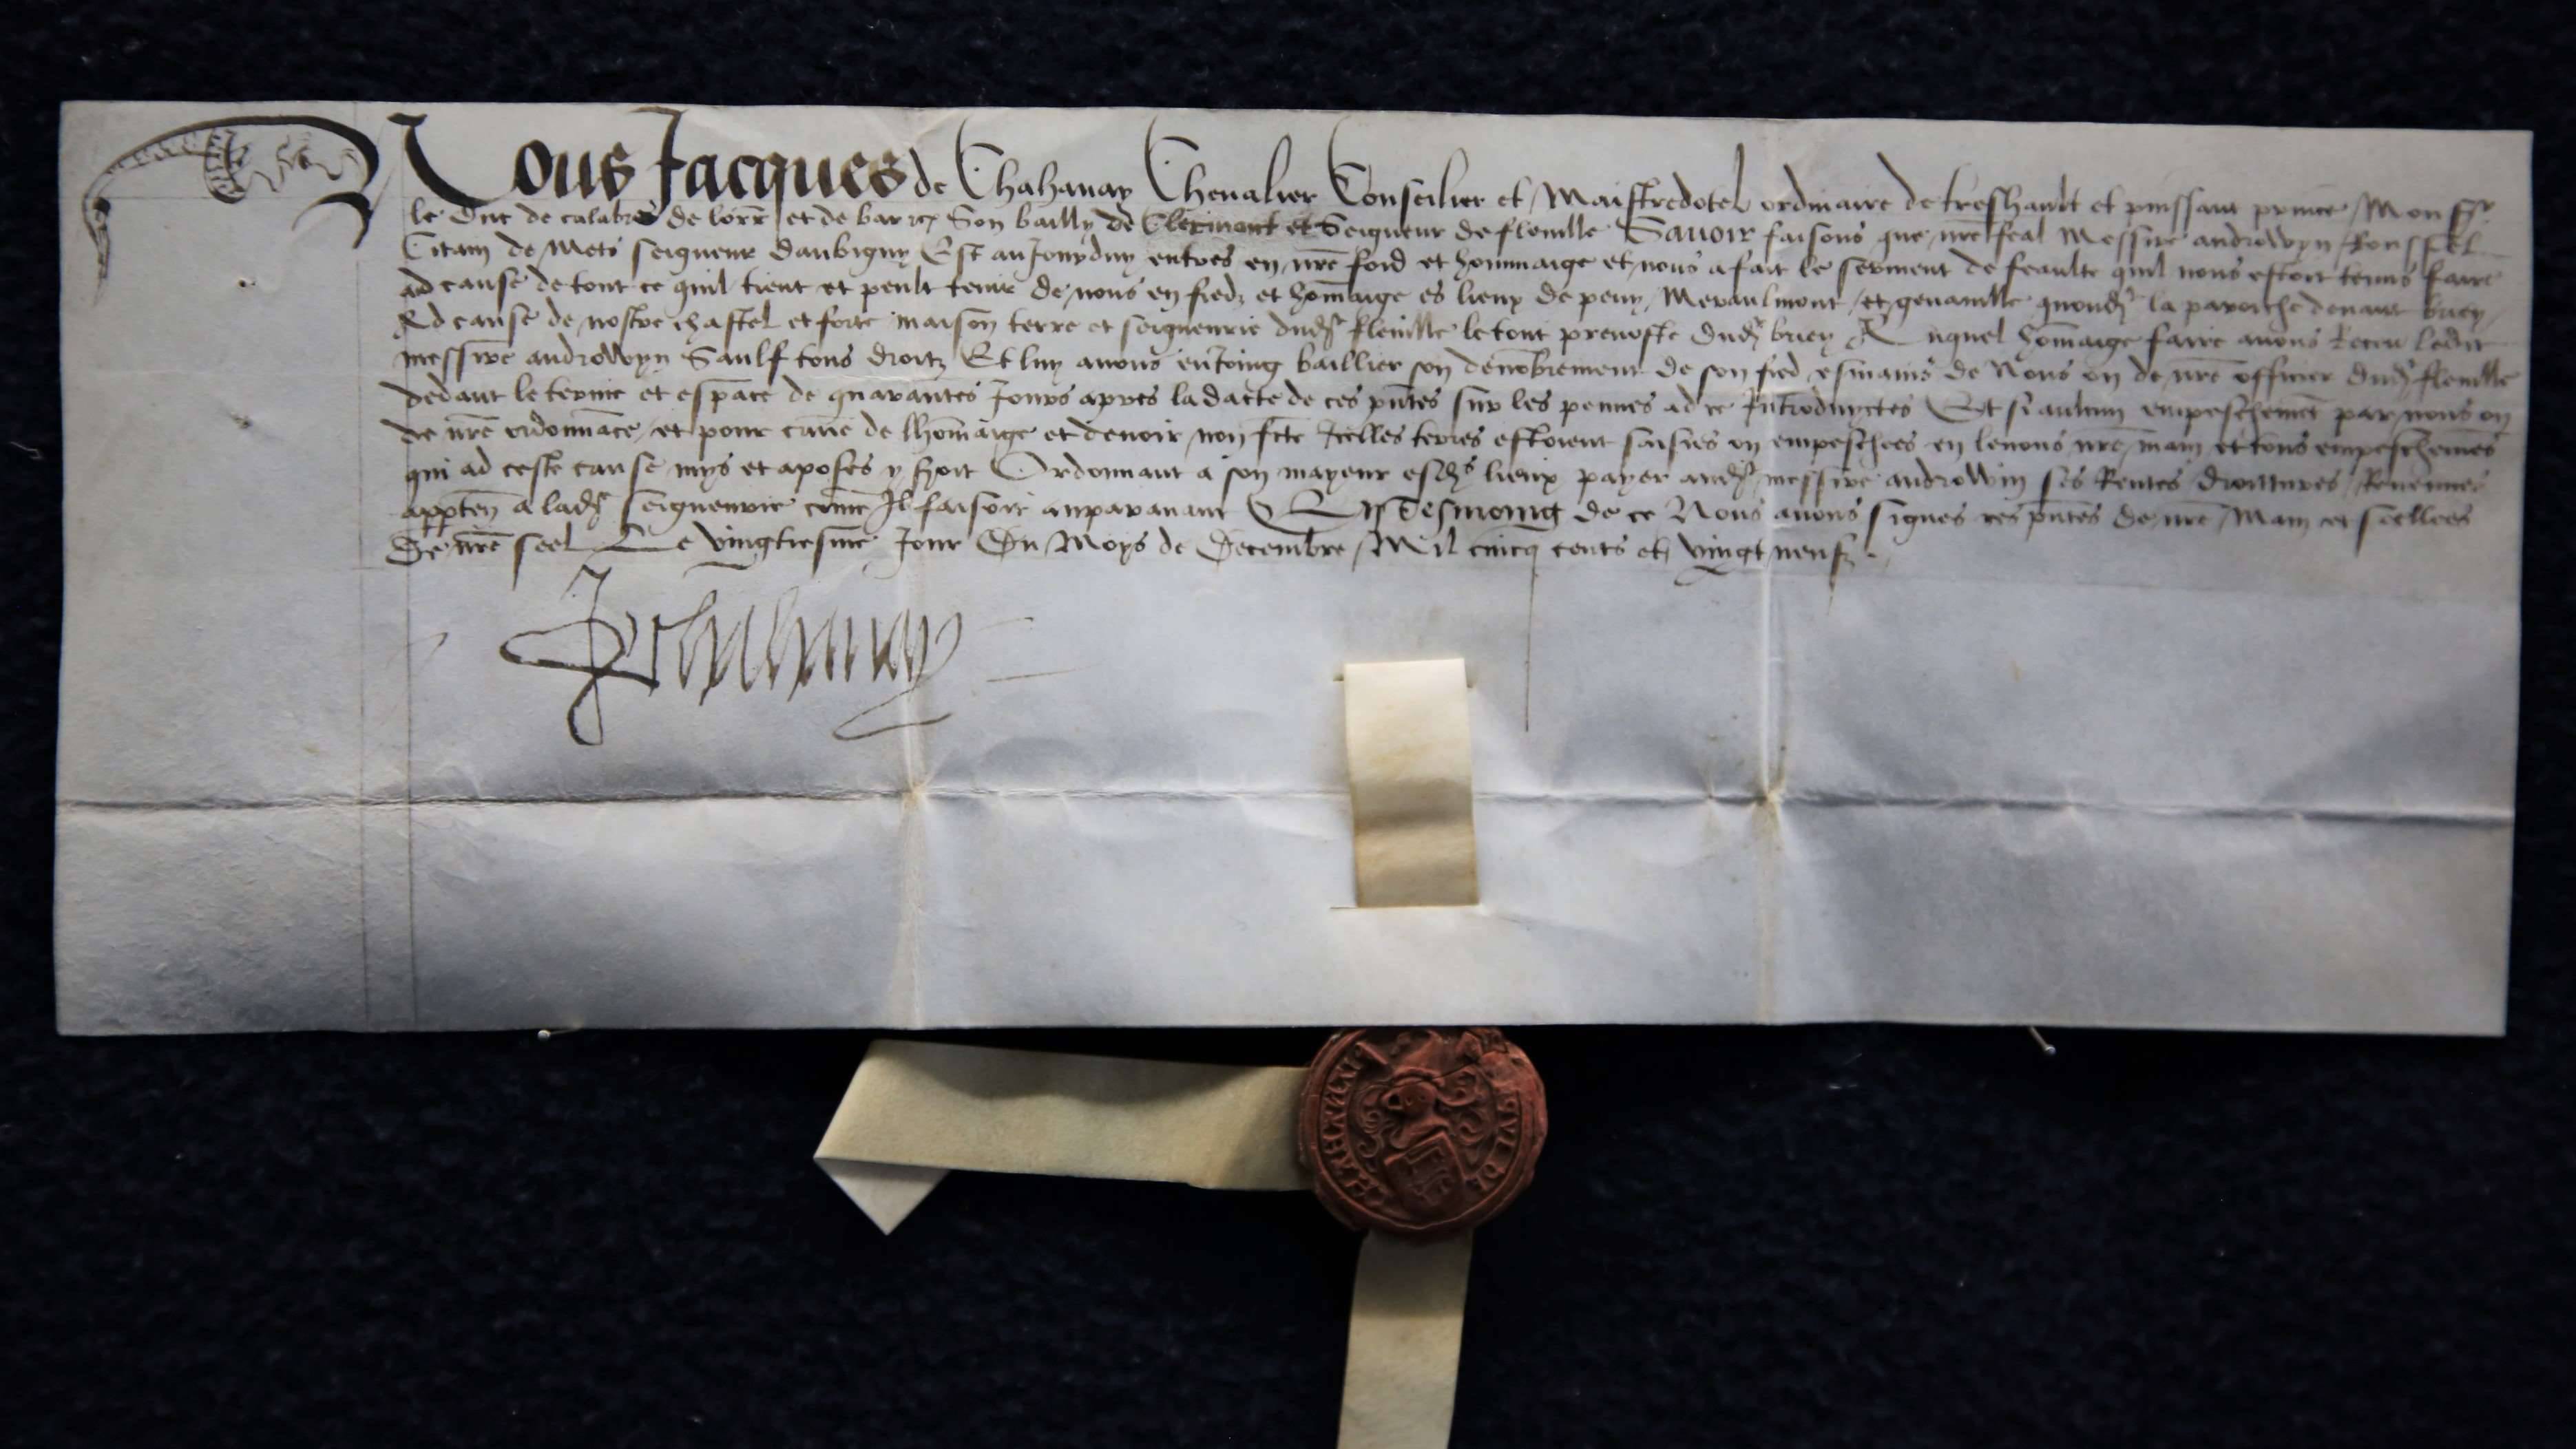 Nous Jacques de Chahanay Chevalier Conseilier et Maistredotel ordinaire de treshault et puissant prince Mons^r
le Duc de calabre de lorr et de bar Son bailly de Clermont et Seigneur de fleville Savoir faisons que nre feal Messire androwyn Roussel
Citain de Mets seigneur daubigny Est aujourduy entres en nre foid et hommaige et nous a fait le serment de feaulte quil nous estoit tenus faire
ad cause de tout ce quil tient et peult tenir de nous en fiedz et homaige es lieux de peuy Meraulmont et genaville la paroiche devant briey
Ad cause de nostre chastel et forte maison terre et seigneurie dud^t fleville le tout prevoste dud^t briey Auquel homaige faire avons Receu ledit
messire androwyn Saulf tous droitz Et luy avons baillier son denobrement de son fied es mains de Nous ou de nre officier dud^t fleville
dedant le terme et espace de quarantes Jours apres la datte de ces pntes sur les pennes ad ce Introduyctes Et si aulcun empeschemet par nous ou
de nre ordonnace et pour cause de lhomaige et devoir non fctc Icelles terres estoient saisies ou empeschees en levons nre main et tous empeschemes
qui ad ceste cause mys et aposes y soit Ordonnant a son mayeur esd^s lieux payer aud^t messire androwin ses Rentes droittures Revenues
appten a lad^t seigneurie come Il faisoit auparavant En Tesmoing de ce Nous avons signes ces pntes de nre Main et seellees
De nre seel Le vingtiesme Jour Du Moys de Decembre Mil cincq cents et vingt neufz
J de Chahanay